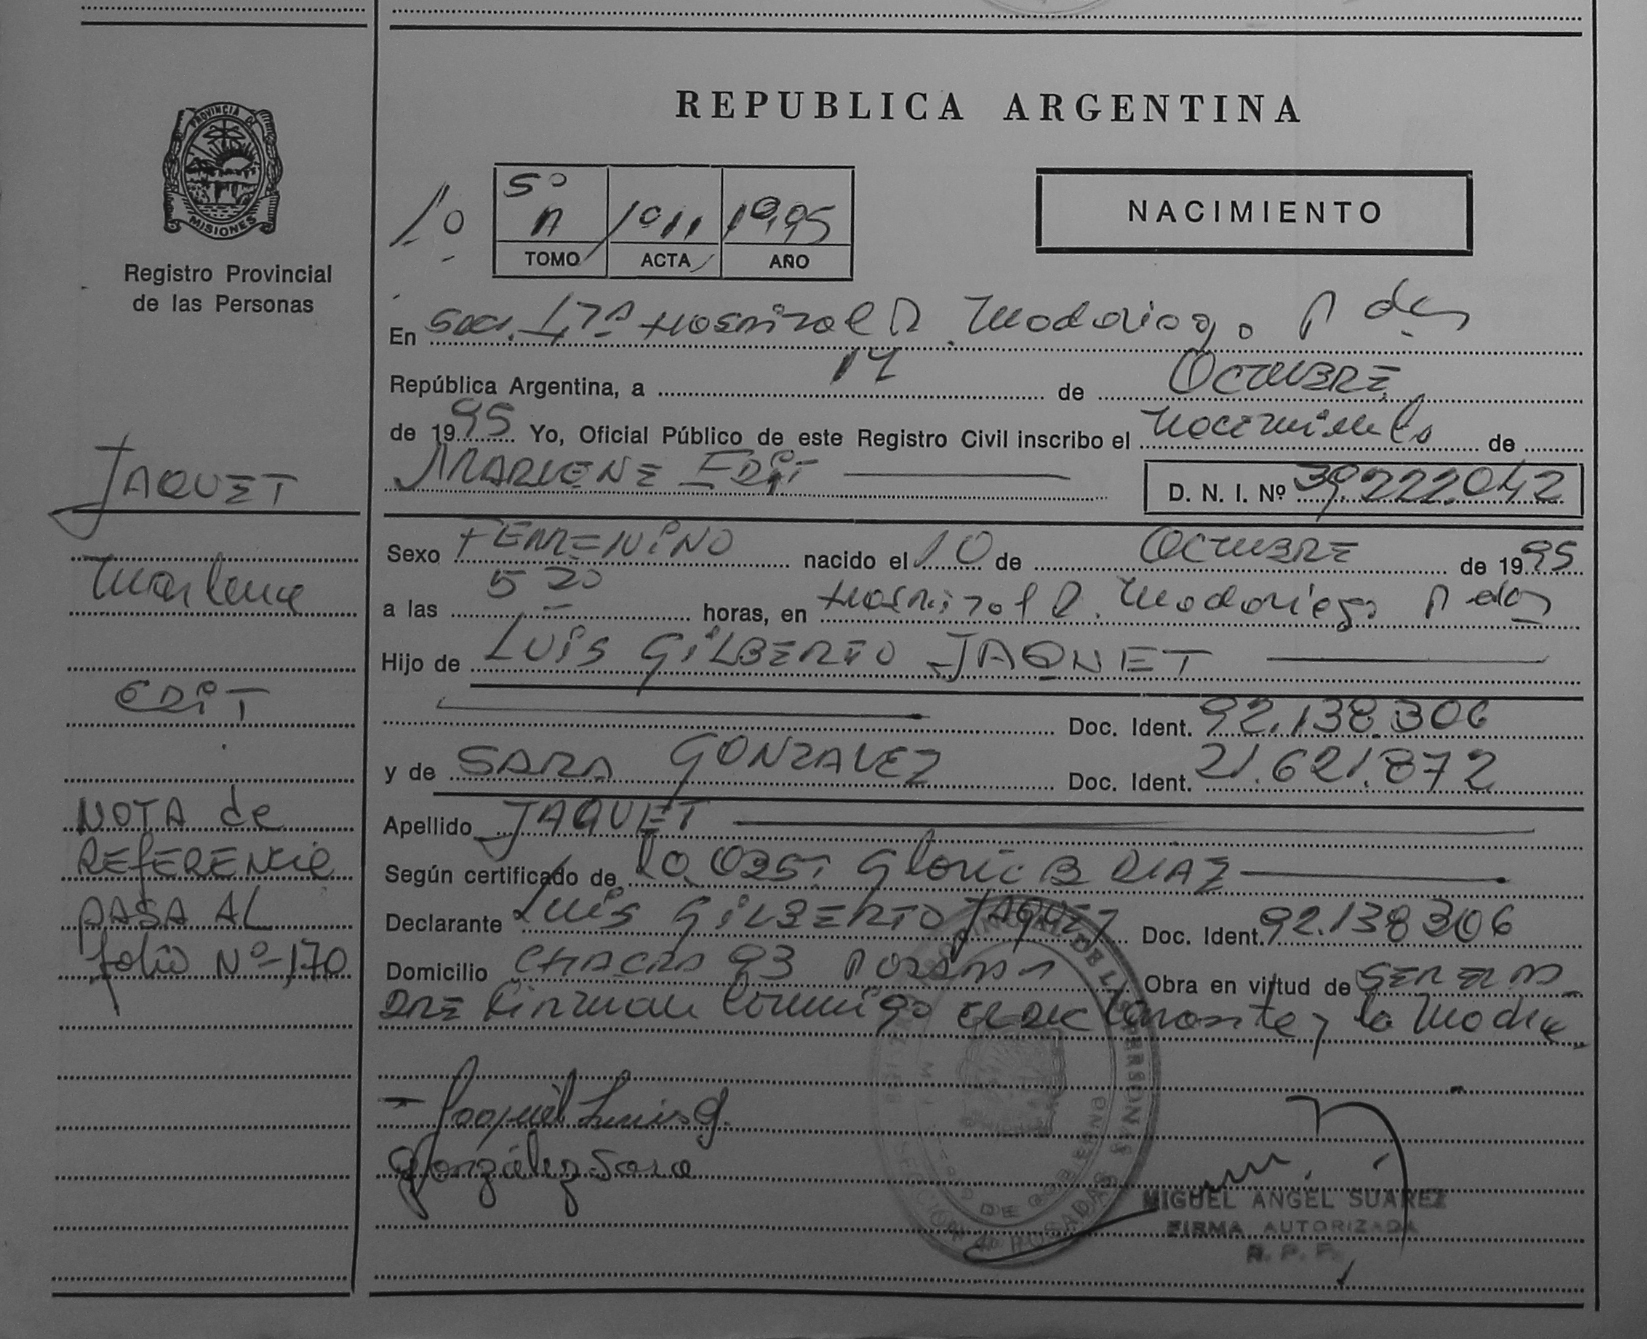 REPUBLICA ARGENTINA
PROVINCIA D
MISIONES
Registro Provincial
de las Personas
1º
5º A 1011 1995
TOMO ACTA AÑO
NACIMIENTO
En Secc. 17ª Hospital R. Madariaga Pdas
República Argentina, a 14 de OCTUBRE
de 1995 Yo, Oficial Público de este Registro Civil inscribo el nacimiento de
MARLENE EDIT D. N. I. Nº 39.222.042
Sexo FEMENINO nacido el 10 de OCTUBRE de 1995
a las 5 20 horas, en Hospital R. Madariaga Pdas
Hijo de LUIS GILBERTO JAQUET
Doc. Ident. 92.138.306
y de SARA GONZALEZ Doc. Ident. 21.621.872
Apellido JAQUET
Según certificado de la Obst Gloria B DIAZ
Declarante LUIS GILBERTO JAQUET Doc. Ident. 92.138306
Domicilio CHACRA 93 POSADAS Obra en virtud de SER EL PA-
DRE Firman conmigo el declarante y la Madre
Jaquet Luis G.
González Sara
MIGUEL ANGEL SUAREZ
FIRMA AUTORIZADA
R. P. P.
JAQUET
Marlene
EDIT
NOTA de
REFERENCIA
PASA AL
folio Nº 170